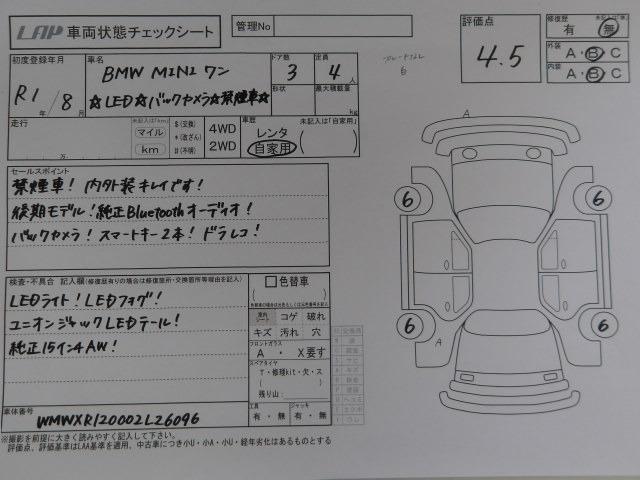 LAP 車両状態チェックシート
管理No
評価点
4.5
修復歴 未記入は「無」
有 ・ 無
外装 A・B・C
内装 A・B・C
初度登録年月
R1年 / 8月
車名
BMW MINI ワン
☆LED☆バックカメラ☆禁煙車☆
ドア数 3
定員 4人
形状
最大積載量
kg
白
走行
万
未記入は「km」
マイル
km
$(交換)
*(改ざん)
#(不明)
4WD
2WD
車歴 未記入は「自家用」
レンタ
自家用
セールスポイント
禁煙車! 内外装キレイです!
後期モデル!純正Bluetoothオーディオ!
バックカメラ! スマートキー2本! ドラレコ!
検査・不具合 記入欄(修復歴有りの場合は修復箇所・交換箇所等理由を記入)
LEDライト! LEDフォグ!
ユニオンジャックLEDテール!
純正15インチAW!
色替車
車内シート コゲ 破れ
キズ 汚れ 穴
フロントガラス
A ・ X要す
スペアタイヤ
T・修理kit・欠・ス
残り山
工具
有・無
ジャッキ
有・無
車体番号
WMWXR120002L26096
※撮影を前提に大きく読みやすく記入して下さい。
評価点、評価基準はLAA基準を適用、中古車につき小U・小A・小U・経年劣化はあるものとする
A
6
6
6
6
A